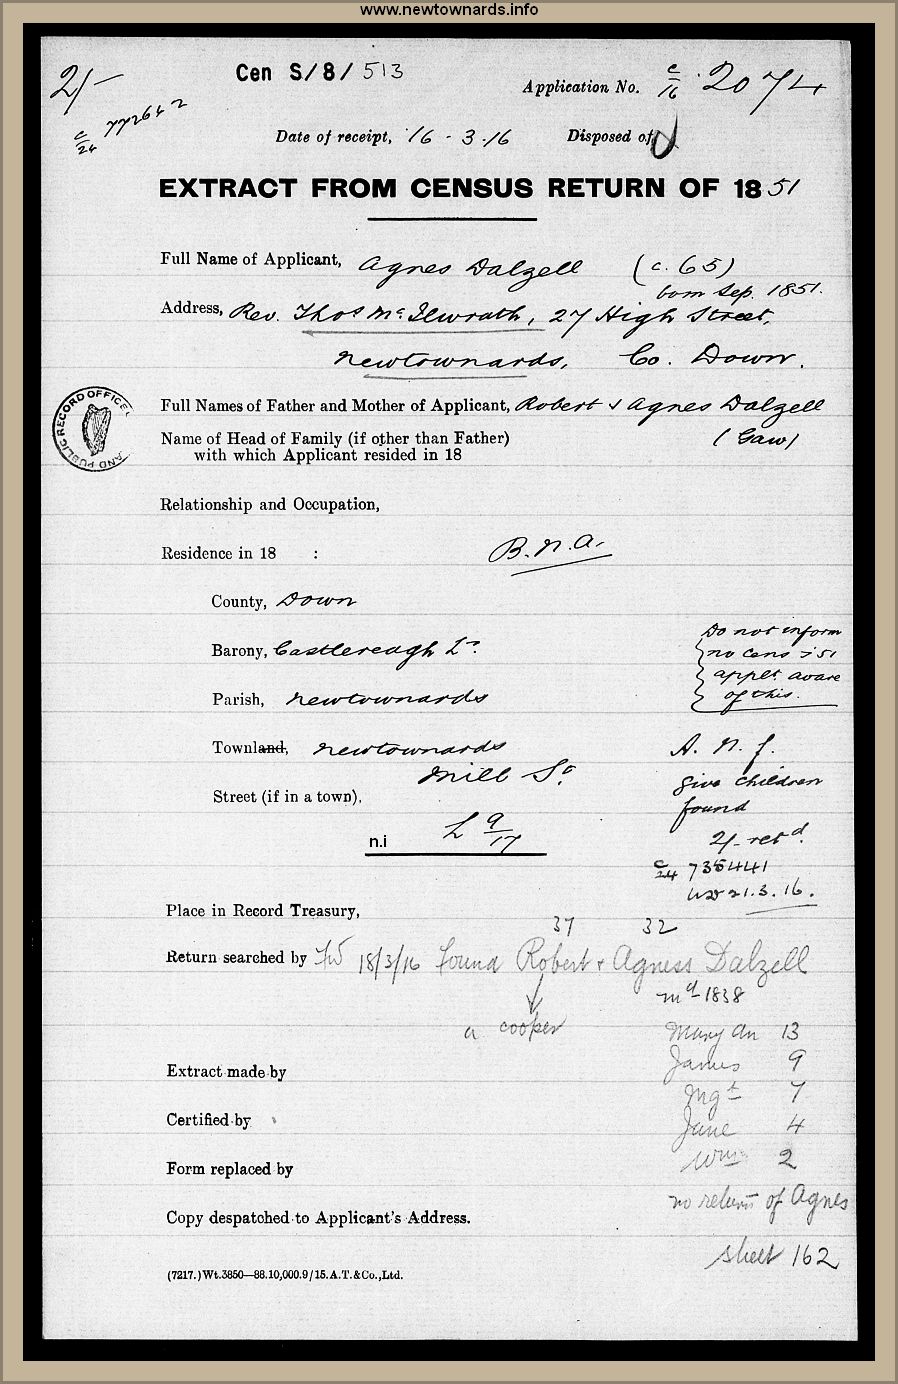 www.newtownards.info
2/-
Cen S/8/513
Application No. c/16 2074
c/24 772642
Date of receipt, 16 - 3 - 16 Disposed of,
EXTRACT FROM CENSUS RETURN OF 1851
Full Name of Applicant, Agnes Dalzell (c. 65)
born Sep. 1851.
Address, Rev. Thos Mc Ilwrath, 27 High Street,
Newtownards, Co. Down.
Full Names of Father and Mother of Applicant, Robert & Agnes Dalzell
(Gaw)
Name of Head of Family (if other than Father)
with which Applicant resided in 18
PUBLIC RECORD OFFICE
Relationship and Occupation,
Residence in 18 : B.N.A.
County, Down
Barony, Castlereagh Lr.
Parish, Newtownards
Do not inform
no cens 51
applt aware
of this.
Townland, Newtownards
Mill St
Street (if in a town),
A. N. f.
give children
found
n.i L 9/17
2/- retd.
c/24 735441
21.3.16.
Place in Record Treasury,
37 32
Return searched by 18/3/16 found Robert & Agness Dalzell
md 1838
a cooper
Mary An 13
James 9
Extract made by
Mgt 7
Certified by
Jane 4
Wm 2
Form replaced by
no return of Agnes
Copy despatched to Applicant's Address.
sheet 162
(7217.)Wt.3850—88.10,000.9/15.A.T.&Co.,Ltd.